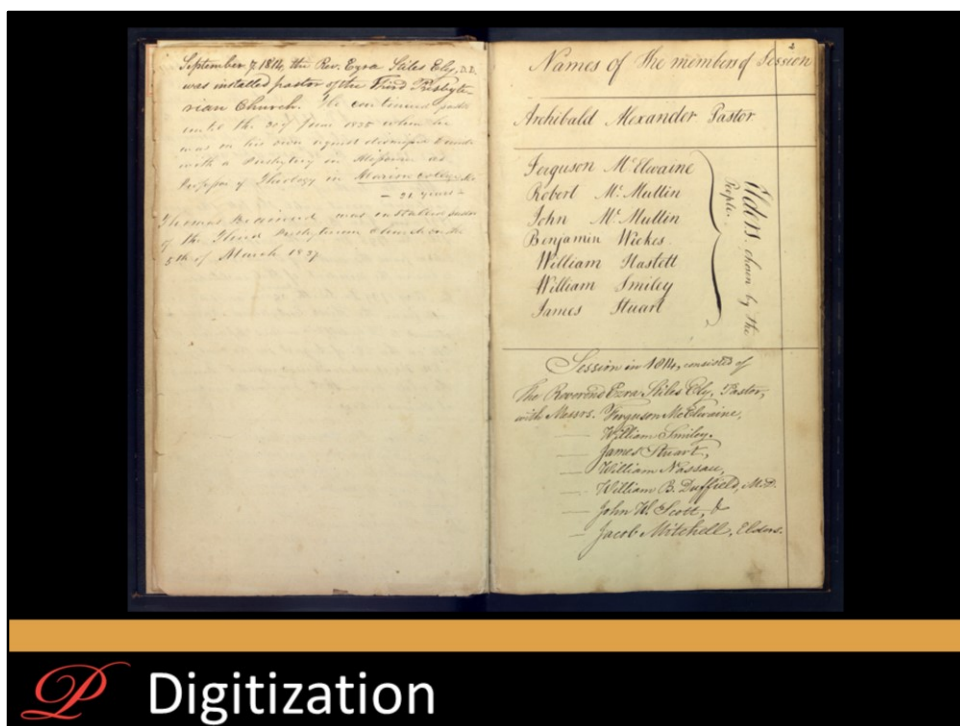 September 7, 1814, the Rev. Ezra Stiles Ely, D.D.
was installed pastor of the Third Presbyte-
rian Church. He continued pastor
until the day June 1835 when he
was on his own request dismissed
with a Presbytery in Missouri as
Professor of Theology in Marion College
— 21 years —
Thomas Brainerd was installed pastor
of the Third Presbyterian Church on the
5th of March 1837
2
Names of the members of Session
Archibald Alexander Pastor
Ferguson McElwaine
Robert McMullin
John McMullin
Benjamin Wickes.
William Haslett
William Smiley
James Stuart
Elders. chosen by the
People.
Session in 1814, consisted of
The Reverend Ezra Stiles Ely, Pastor,
with Messrs. Ferguson McElwaine,
— William Smiley,
— James Stuart,
— William Nassau,
— William B. Duffield, M.D.
— John W. Scott, &
— Jacob Mitchell, Elders.
P Digitization